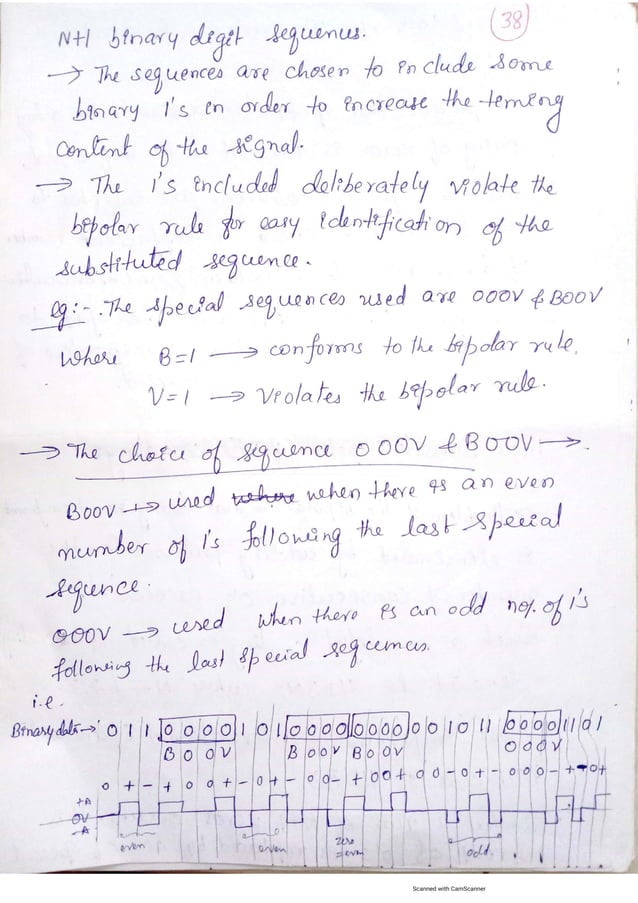 38
N+1 binary digit sequences.
→ The sequences are chosen to include some
binary 1's in order to increase the teming
content of the signal.
→ The 1's included deliberately violate the
bipolar rule for easy identification of the
substituted sequence.
eg:- The special sequences used are 000V & B00V
where B=1 → conforms to the bipolar rule.
V=1 → violates the bipolar rule.
→ The choice of sequence 000V & B00V →.
B00V → used where when there is an even
number of 1's following the last special
sequence.
000V → used when there is an odd no. of 1's
following the last special sequences.
i.e.
Binary data → 0 1 1 0000 1 0 1 0000 0000 0 0 1 0 1 1 0000 1 1 0 1
B 0 0 V B 0 0 V B 0 0 V 0 0 0 V
0 + - + 0 0 + - 0 + - 0 0 - + 0 0 + 0 0 - 0 + - 0 0 0 - + - 0 +
+A
0V
-A
even even zero odd.
=even
Scanned with CamScanner